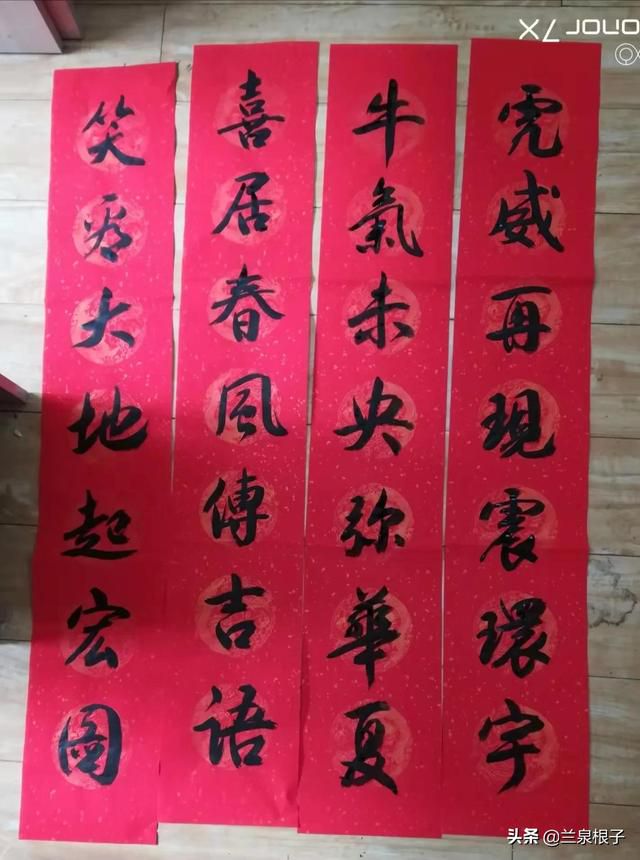 虎威再現震環宇
牛氣未央弥華夏
喜居春風傳吉語
笑看大地起宏圖
头条 @兰泉根子